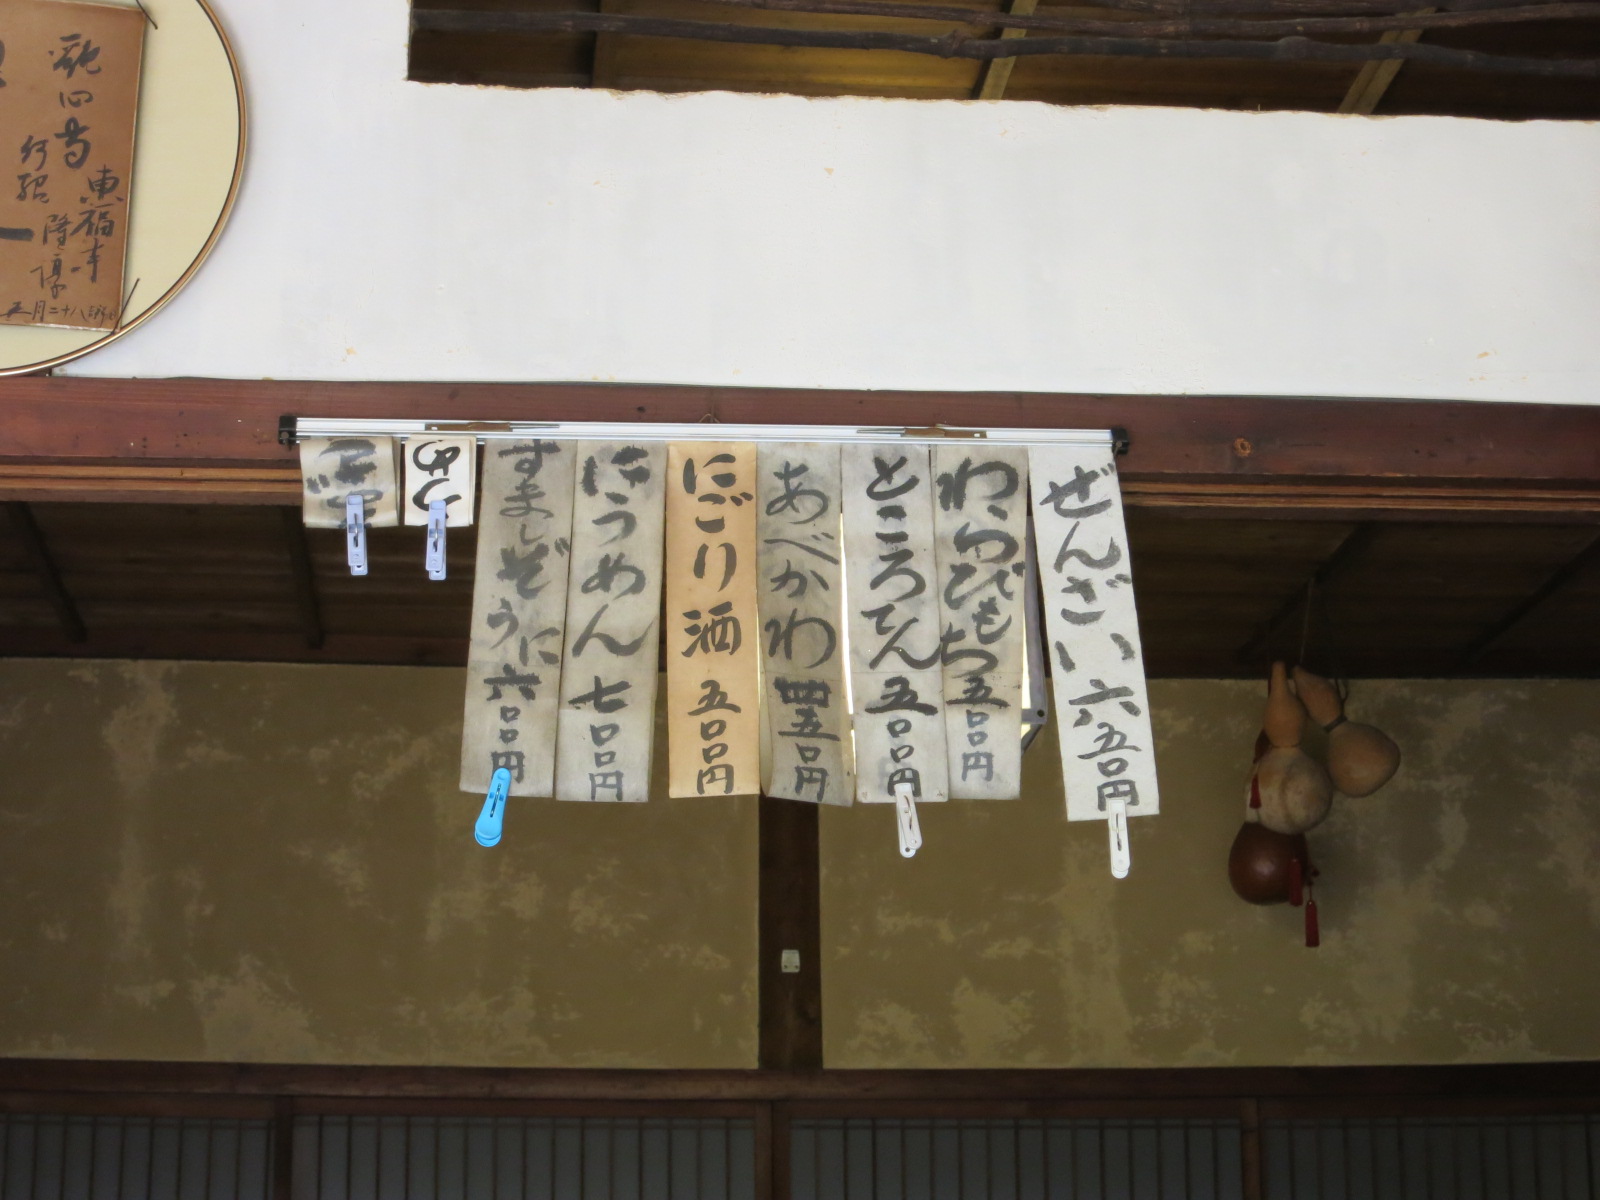 ぜんざい 六五〇円
わらびもち 五〇〇円
ところてん 五〇〇円
あべかわ 四五〇円
にごり酒 五〇〇円
にうめん 七〇〇円
すましぞうに 六〇〇円
観心寺
東福寺
行脚
隆淳
五月二十八